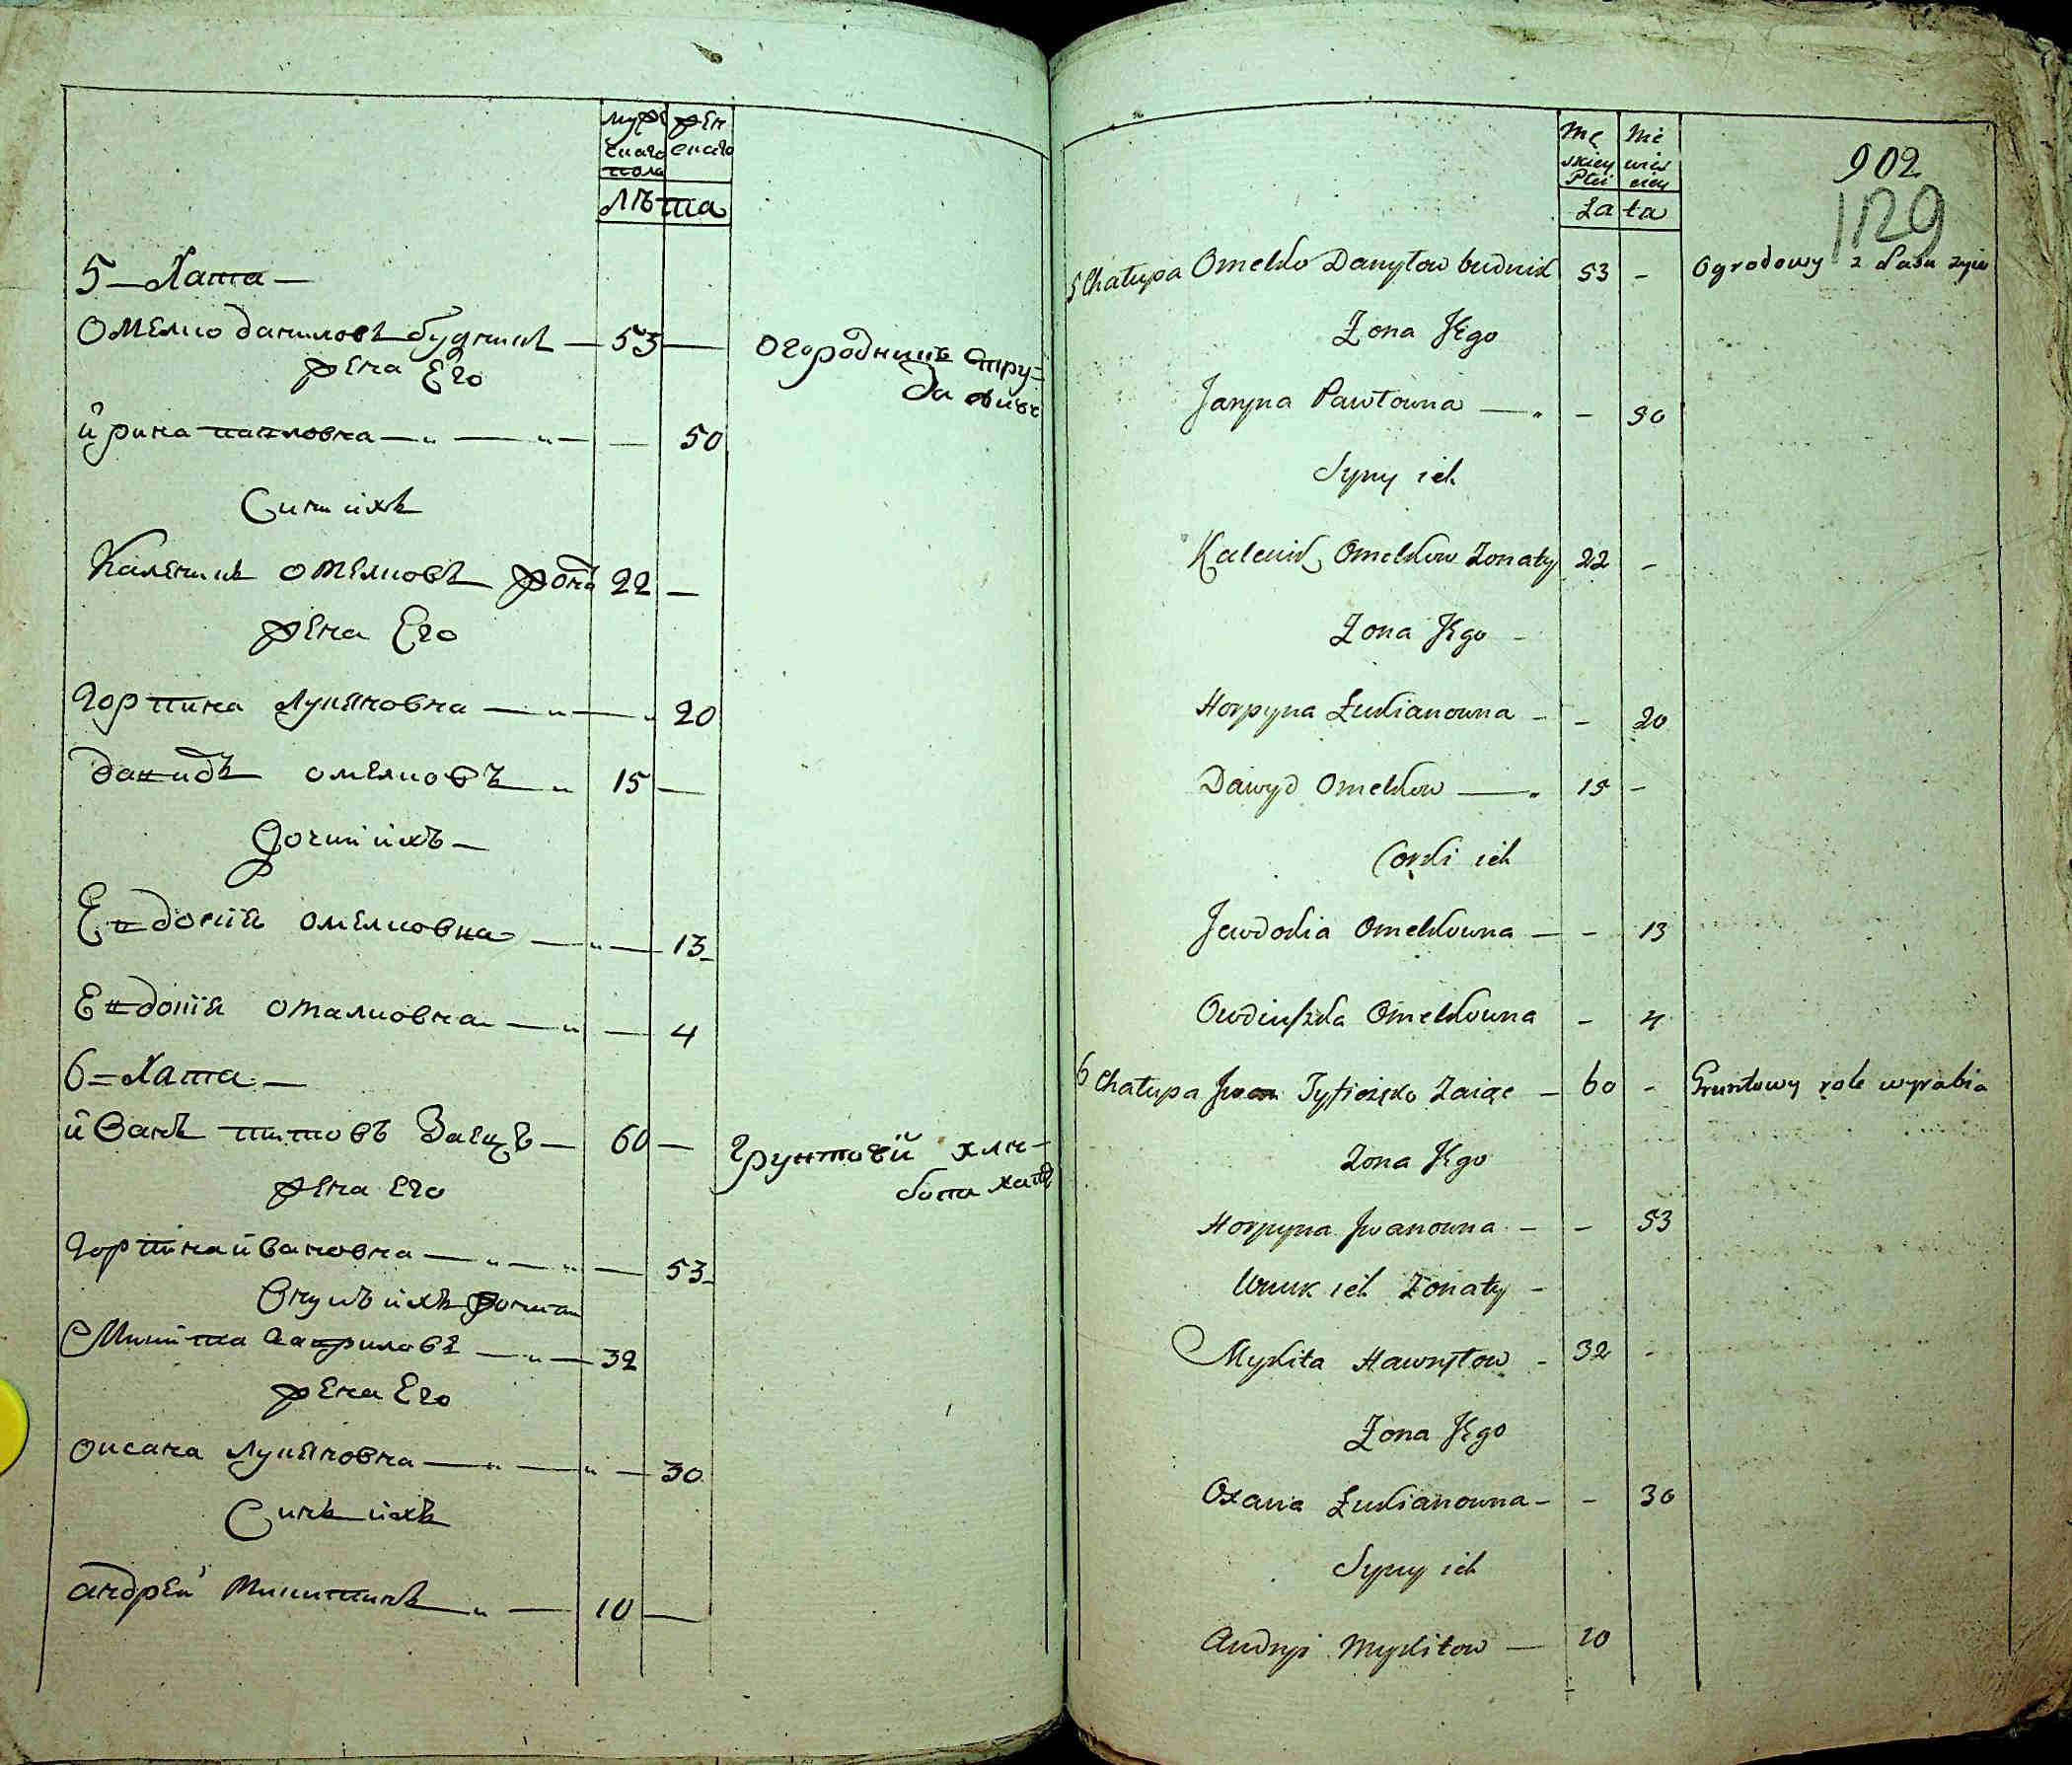 мужеснаго пола
женснаго
лѣта
5 – Хата –
Омелко даниловъ будникъ — 53 —
жена Его
огородникъ стру=
да живе
ирина павловна — „ — „ — — 50
Сини ихъ
Каленикъ омелковъ жона 22 —
жена Его
Горпина Лукяновна — „ — „ 20
давидъ омелковъ „ 15 —
Дочки ихъ —
Евдокия омелковна — „ — 13
Евдокия омелковна — „ — 4
6 = Хата —
иванъ титовъ Заецъ — 60 —
грунтовий хле-
бопа
жена Его
Горпина ивановна — „ — „ — 53
Внукъ ихъ
Микита Гавриловъ — „ — 32
жена Его
оксана Лукяновна — „ — „ — 30
Синъ ихъ
андрей Микитинъ „ — 10 —
Mę
skiey
Płci
Nie
wieś
ciey
Lata
902
129
5 Chałupa Omelko Danyłow budnik 53 –
Ogrodowy z
Żona Jego
Jaryna Pawłowna — „ – 50
Syny ich
Kalenik Omelkow Żonaty 22 –
Żona Jego –
Horpyna Łukianowna – – 20
Dawyd Omelkow — „ 15 –
Corki ich
Jewdokia Omelkowna — – 13
Owdiuszka Omelkowna – 4
6 Chałupa Jwan Zaiąc – 60 –
Gruntowy role wyrabia
Żona Jego
Horpyna Jwanowna – – 53
Wnuk ich Żonaty –
Mykita Hawryłow – 32 –
Żona Jego
Oxana Łukianowna – – 30
Syny ich
Andryi Mykitow — 10